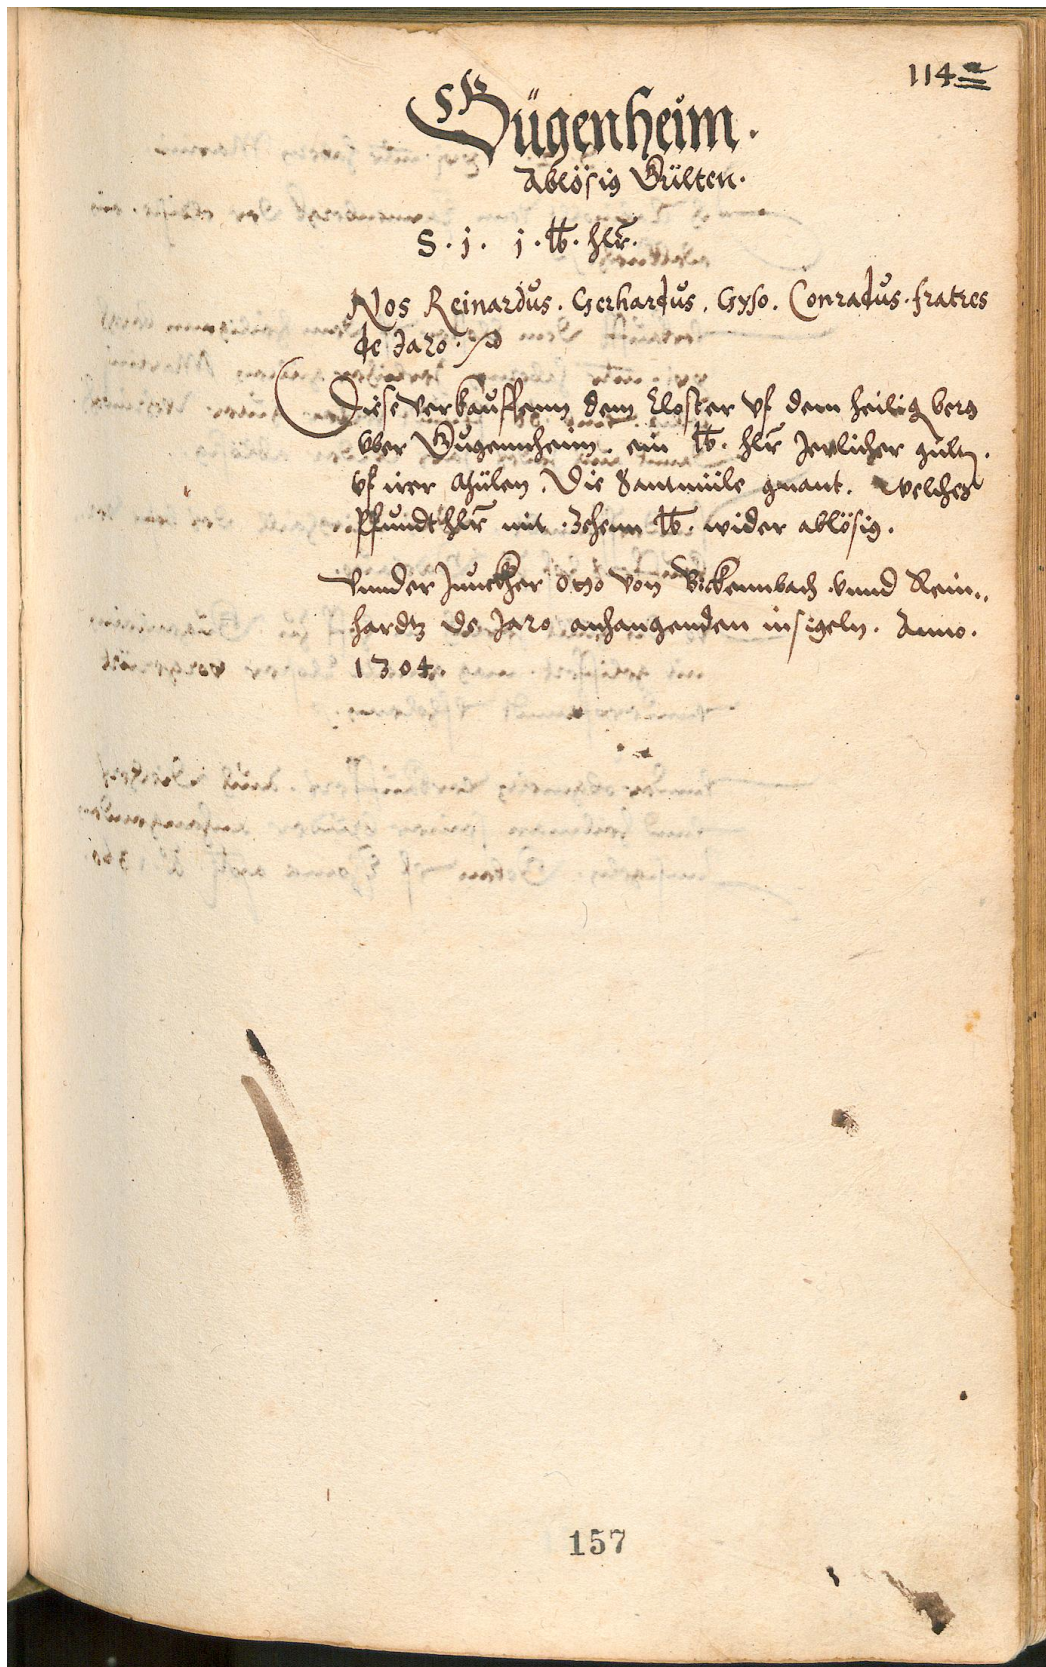 114 a
Gügenheim.
Ablösig Gülten.
S. j. j. lb. hlr.
Nos Reinardus. Gerhardus. Gyso. Conradus. fratres
de Jazo.
Diese verkauffenn dem Closter vf dem heilig berg
vber Gugennheim. ein lb. hlr Jerlicher gult.
vf irer Mülen. Die Santmüle gnant. welches
pfundt hlr mit zehenn lb. wider ablösig.
Vnnder Junckher Otto von Bickennbach vnnd Rein..
hardtz de Jazo anhangenden insigeln. Anno.
1304.
157